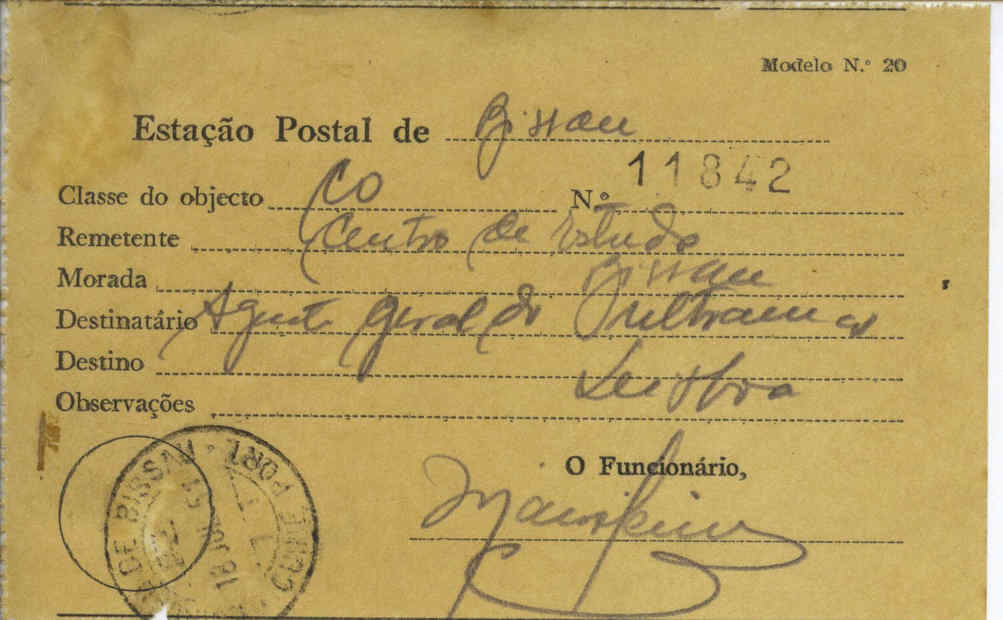 Modelo N.º 20
Estação Postal de Bissau
Classe do objecto CO N.º 11842
Remetente Centro de Estudo
Morada Bissau
Destinatário Agente Geral do Ultramar
Destino Lisboa
Observações
O Funcionário,
DE BISSAU
GUINÉ PORT.